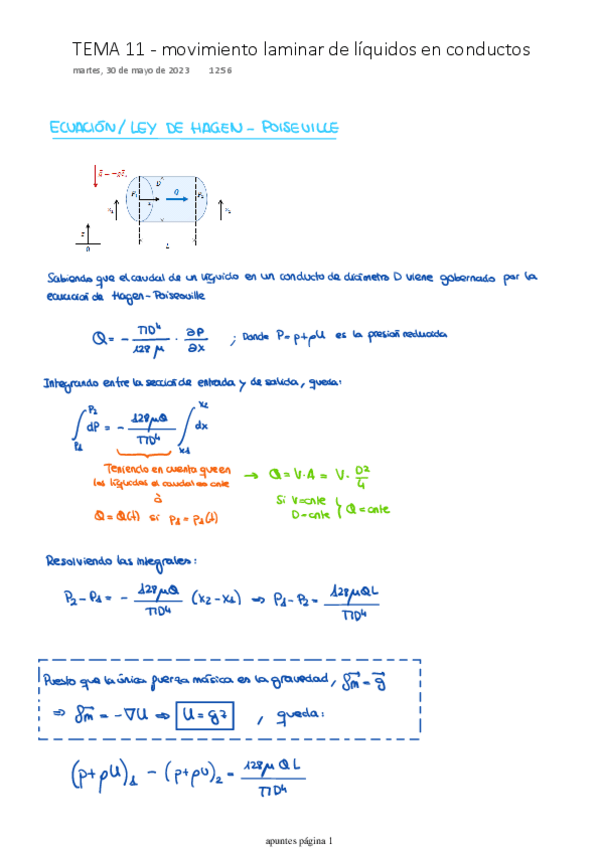 TEMA 11 - movimiento laminar de líquidos en conductos
martes, 30 de mayo de 2023 12:56
ECUACIÓN/LEY DE HAGEN-POISEUILLE
g = -g
D
P1 Q P2
x1 x2
z
0 L
Sabiendo que el caudal de un líquido en un conducto de diámetro D viene gobernado por la
ecuación de Hagen-Poiseouille
Q = - πD⁴/128μ · ∂P/∂x ; Donde P = p+ρU es la presión reducida
Integrando entre la sección de entrada y de salida, queda:
∫_{P1}^{P2} dP = - 128μQ/πD⁴ ∫_{x1}^{x2} dx
Teniendo en cuenta que en → Q = V·A = V· D²/4
los líquidos el caudal es cnte
Si V=cnte
D=cnte } Q=cnte
ò
Q = Q(t) si P1 = P1(t)
Resolviendo las integrales:
P2 - P1 = - 128μQ/πD⁴ (x2 - x1) ⇒ P1 - P2 = 128μQL/πD⁴
Puesto que la única fuerza másica es la gravedad, fm = g
⇒ fm = -∇U ⇒ U = gz , queda:
(p+ρU)1 - (p+ρU)2 = 128μQL/πD⁴
apuntes página 1